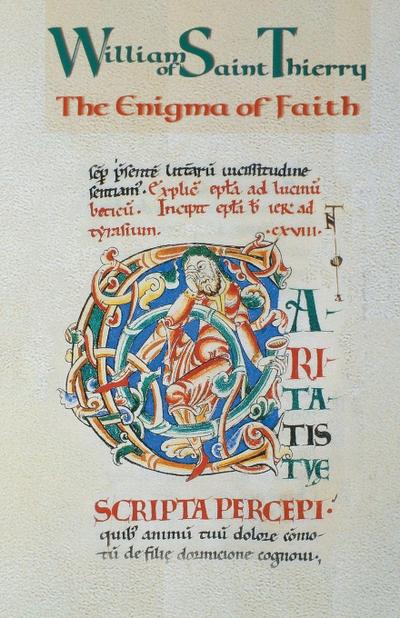 William of Saint Thierry
The Enigma of Faith
sēp p̄sentē litt̄arū uicissitudine
sentiam̄. Explic̄ epl̄a ad lucinū
beticū. Incipit epl̄a b̄ ier̄ ad
tyrasium. .cxviii.
CARITATIS
TVE
SCRIPTA PERCEPI.
quib; animū tuū dolore cōmo-
tū de filie dormicione cognoui.,